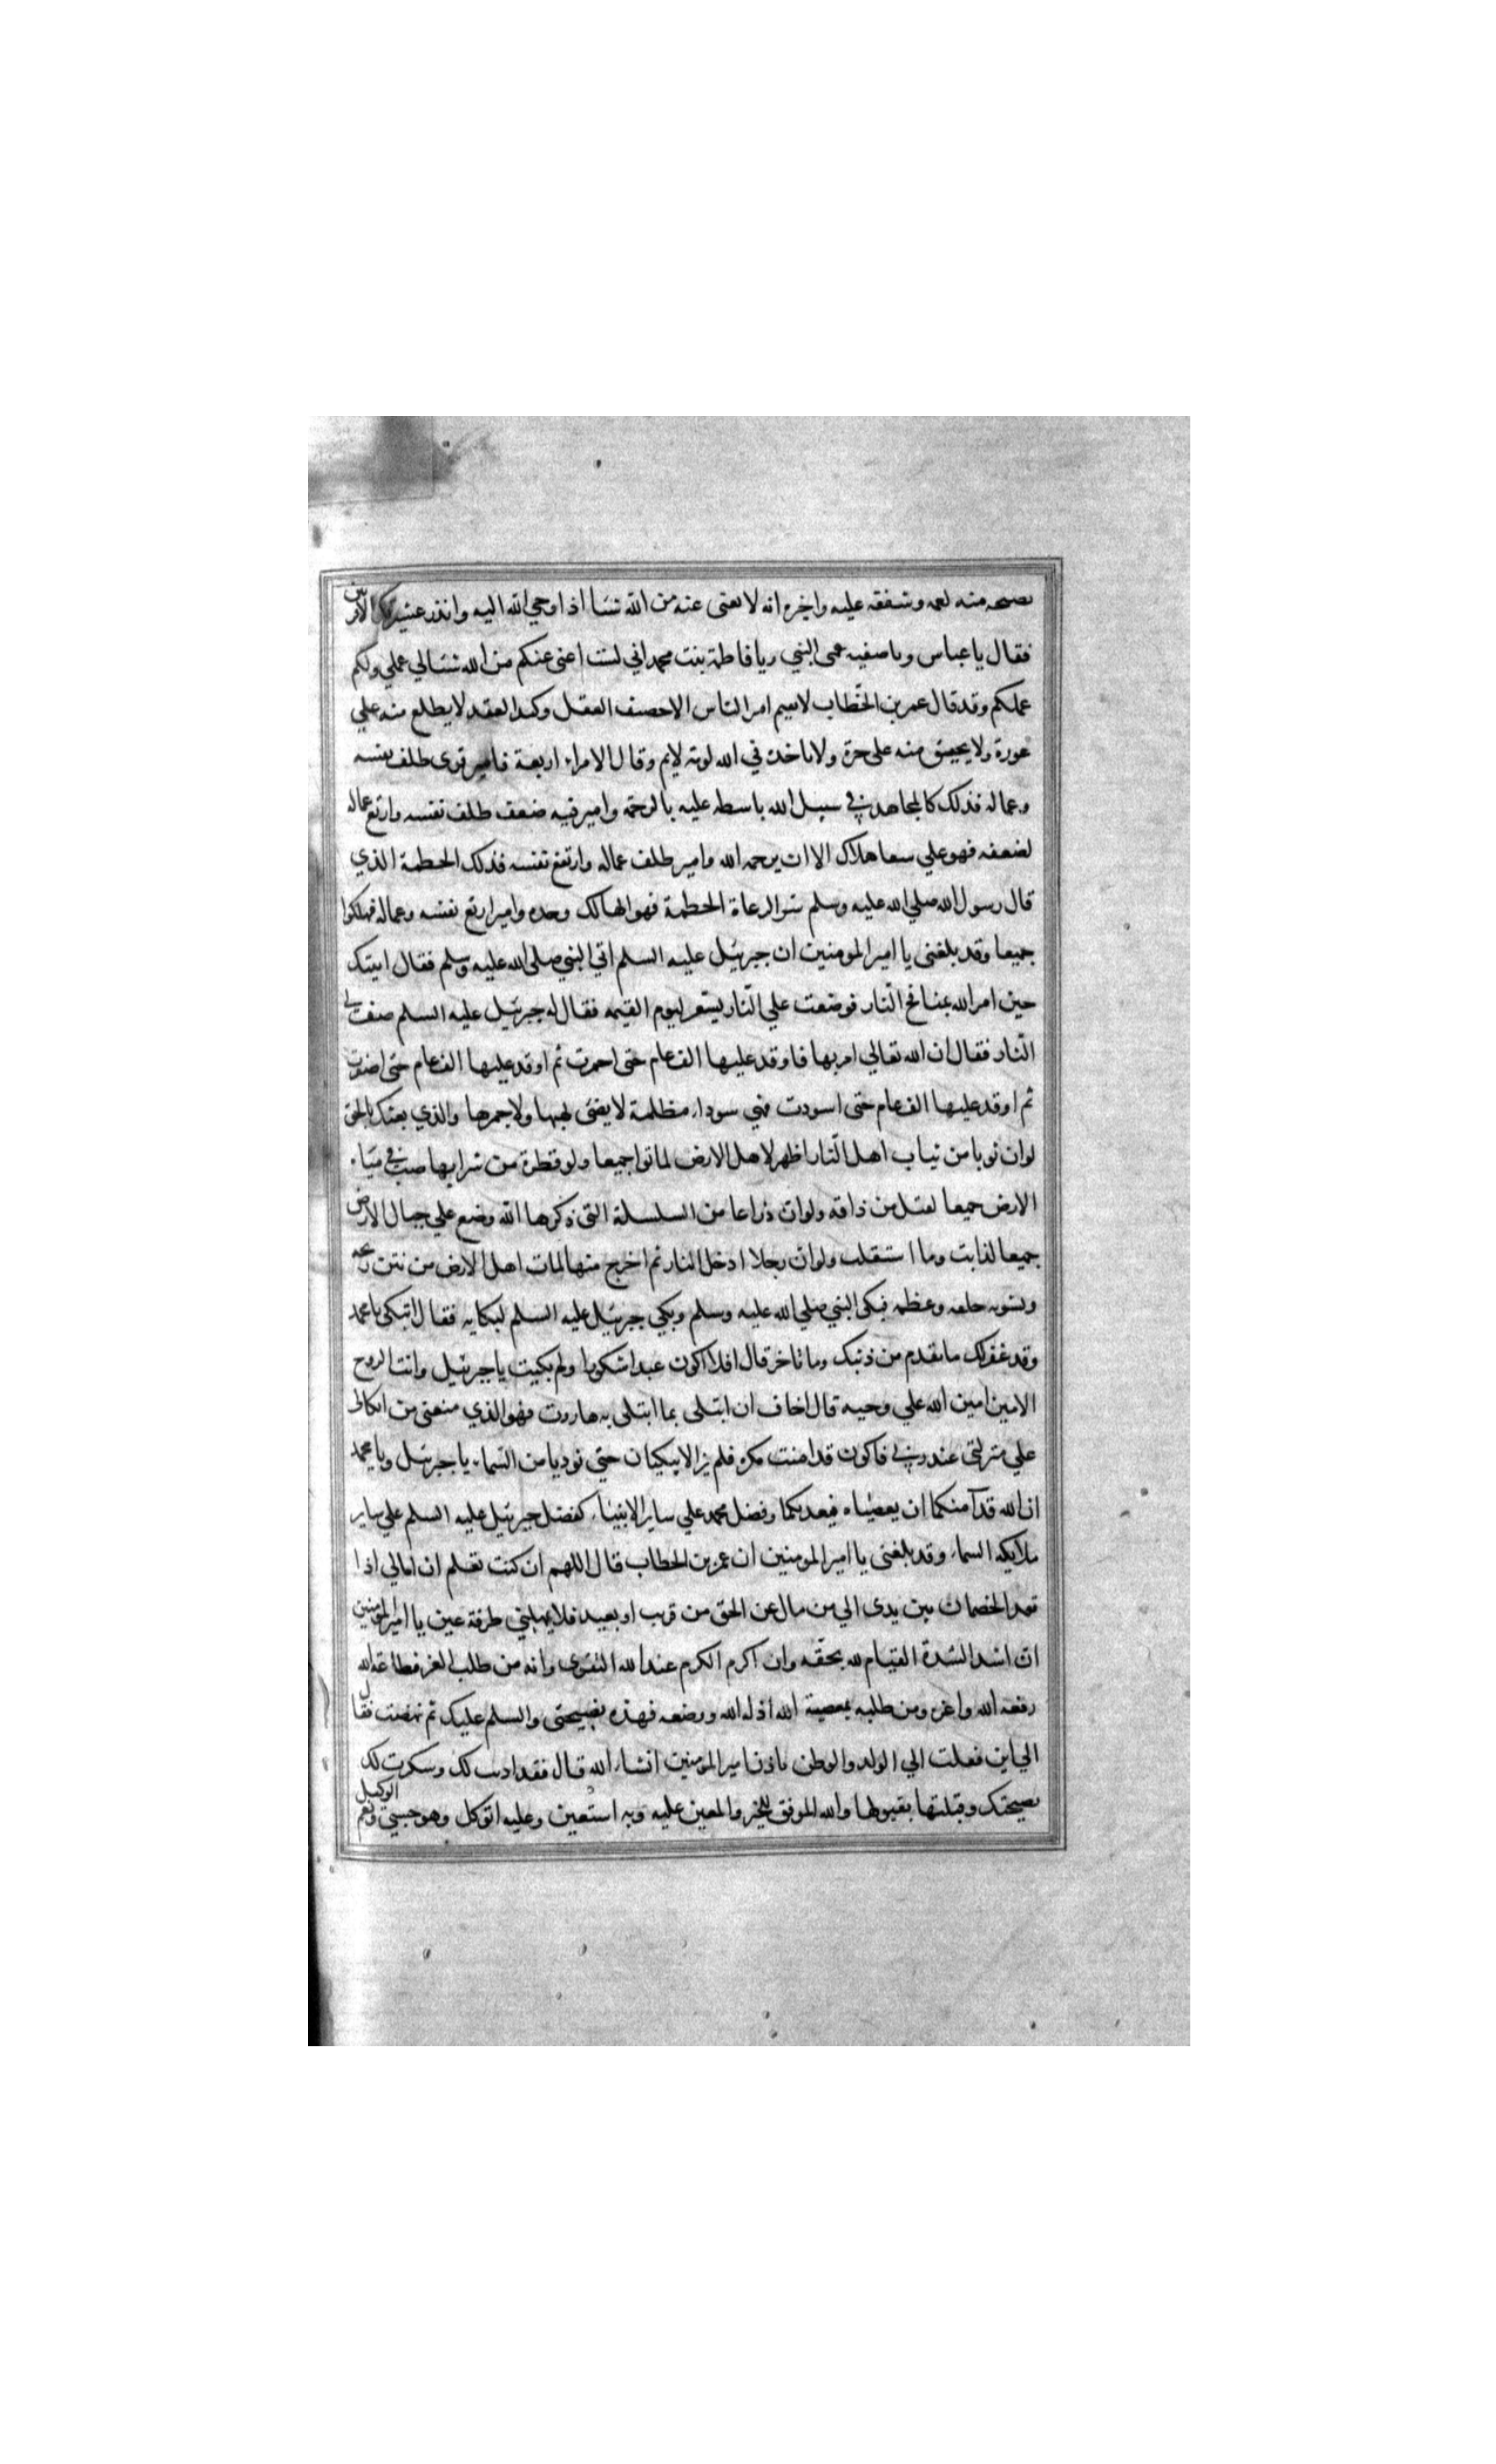 نصيحة منه لعمه وشفقه عليه واخبره انه لا يغنى عنه من الله شيئا اذ اوحي الله اليه وانذر عشيرتك الاقربين
فقال يا عباس ويا صفيه عمى النبي ويا فاطمة بنت محمد اني لست اغنى عنكم من الله شيئا لي عملي ولكم
عملكم وقد قال عمر بن الخطاب لا يقيم امر الناس الا حصيف العقل وكيد العقد لا يطلع منه علي
عورة ولا يحنق منه على حرة ولا تاخذه في الله لومة لايم وقال الامراء اربعة فامير قوى طلف نفسه
وعماله فذلك كالمجاهد في سبيل الله باسطه عليه بالرحمة وامير فيه ضعف طلف نفسه وارتع عماله
لضعفه فهو علي شفا هلاك الا ان يرحمه الله وامير طلف عماله وارتع نفسه فذلك الحطمة الذي
قال رسول الله صلي الله عليه وسلم شر الرعاة الحطمة فهو الهالك وحده وامير ارتع نفسه وعماله فهلكوا
جميعا وقد بلغنى يا امير المومنين ان جبرئيل عليه السلم اتي النبي صلى الله عليه وسلم فقال اتيتك
حين امر الله بمنافخ النار فوضعت علي النار يستعر ليوم القيمه فقال له جبرئيل عليه السلم صف لي
النار فقال ان الله تعالي امر بها فاوقد عليها الف عام حتى احمرت ثم اوقد عليها الف عام حتى اصفرت
ثم اوقد عليها الف عام حتى اسودت فهي سوداء مظلمة لا يضئ لهبها ولا جمرها والذي بعثك بالحق
لو ان ثوبا من ثياب اهل النار اظهر لاهل الارض لماتوا جميعا ولو قطرة من شرابها صب في مياه
الارض جميعا لقتل من ذاقه ولو ان ذراعا من السلسلة التى ذكرها الله وضع علي جبال الارض
جميعا لذابت وما استقلت ولو ان رجلا ادخل النار ثم اخرج منها لمات اهل الارض من نتن ريحه
وتشويه خلقه وعظمه فبكى النبي صلي الله عليه وسلم وبكي جبرئيل عليه السلم لبكايه فقال اتبكى يا محمد
وقد غفر لك ما تقدم من ذنبك وما تاخر قال افلا اكون عبدا شكورا ولم بكيت يا جبرئيل وانت الروح
الامين امين الله علي وحيه قال اخاف ان ابتلى بما ابتلى به هاروت فهو الذي منعنى من اتكالي
علي منزلتى عند ربي فاكون قد امنت مكره فلم يزالا يبكيان حتي نوديا من السماء يا جبرئيل ويا محمد
ان الله قد آمنكما ان يعصياه فيعذبكما وفضل محمد علي ساير الانبياء كفضل جبرئيل عليه السلم علي ساير
ملايكه السماء وقد بلغنى يا امير المومنين ان عمر بن الخطاب قال اللهم ان كنت تعلم ان ابالي اذا
قعد الخصمان بين يدى الي من مال عن الحق من قريب او بعيد فلا تمهلني طرفة عين يا امير المومنين
ان اشد الشدة القيام لله بحقه وان اكرم الكرم عند الله التقوى وانه من طلب العز فطاعة الله
رفعه الله واعزه ومن طلبه بمعصية الله اذله الله ووضعه فهذه نصيحتى والسلم عليك ثم نهضت فقال
الي اين فعلت الي الولد والوطن باذن امير المومنين انشاء الله قال فقد اذنت لك وشكرت لك
نصيحتك وقبلتها بقبولها والله الموفق للخير والمعين عليه وبه استعين وعليه اتوكل وهو حسبي ونعم الوكيل